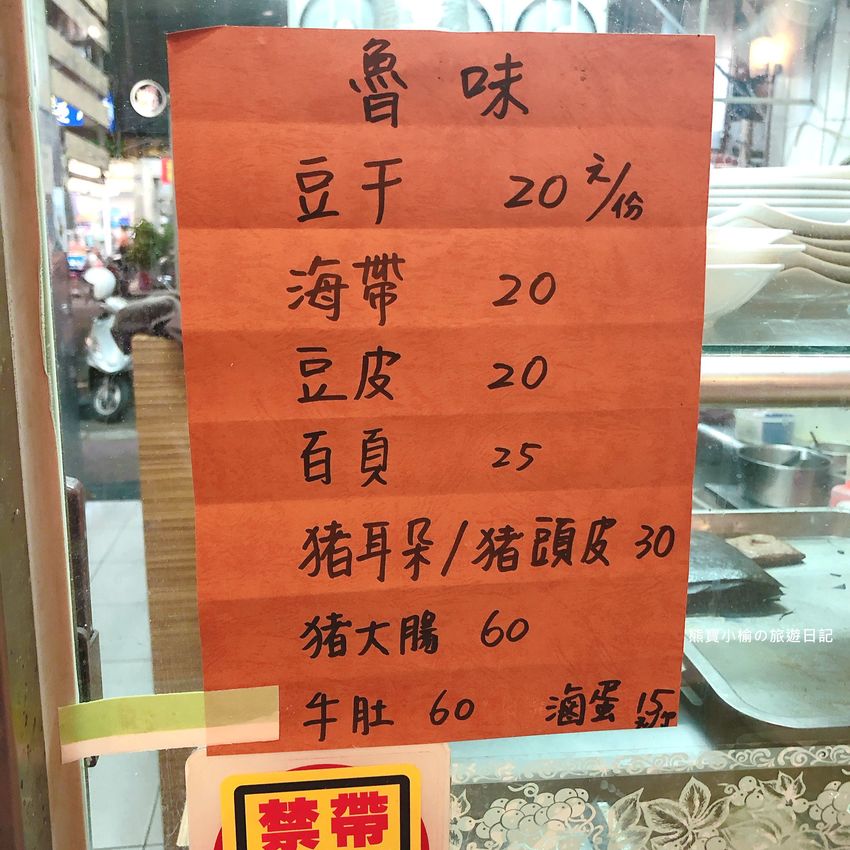 魯味
豆干 20元/份
海帶 20
豆皮 20
百頁 25
猪耳朵/猪頭皮 30
猪大腸 60
牛肚 60 滷蛋 15
熊寶小榆の旅遊日記
禁帶